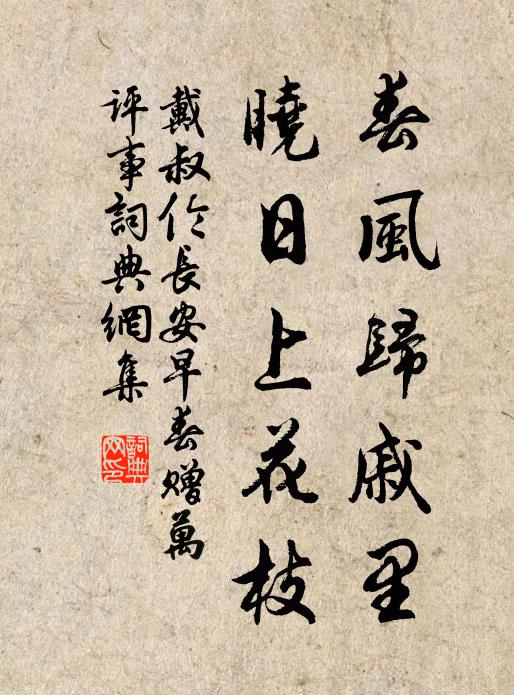 春風歸戚里
曉日上花枝
戴叔伦長安早春贈萬
評事詞典網集
詞典網印